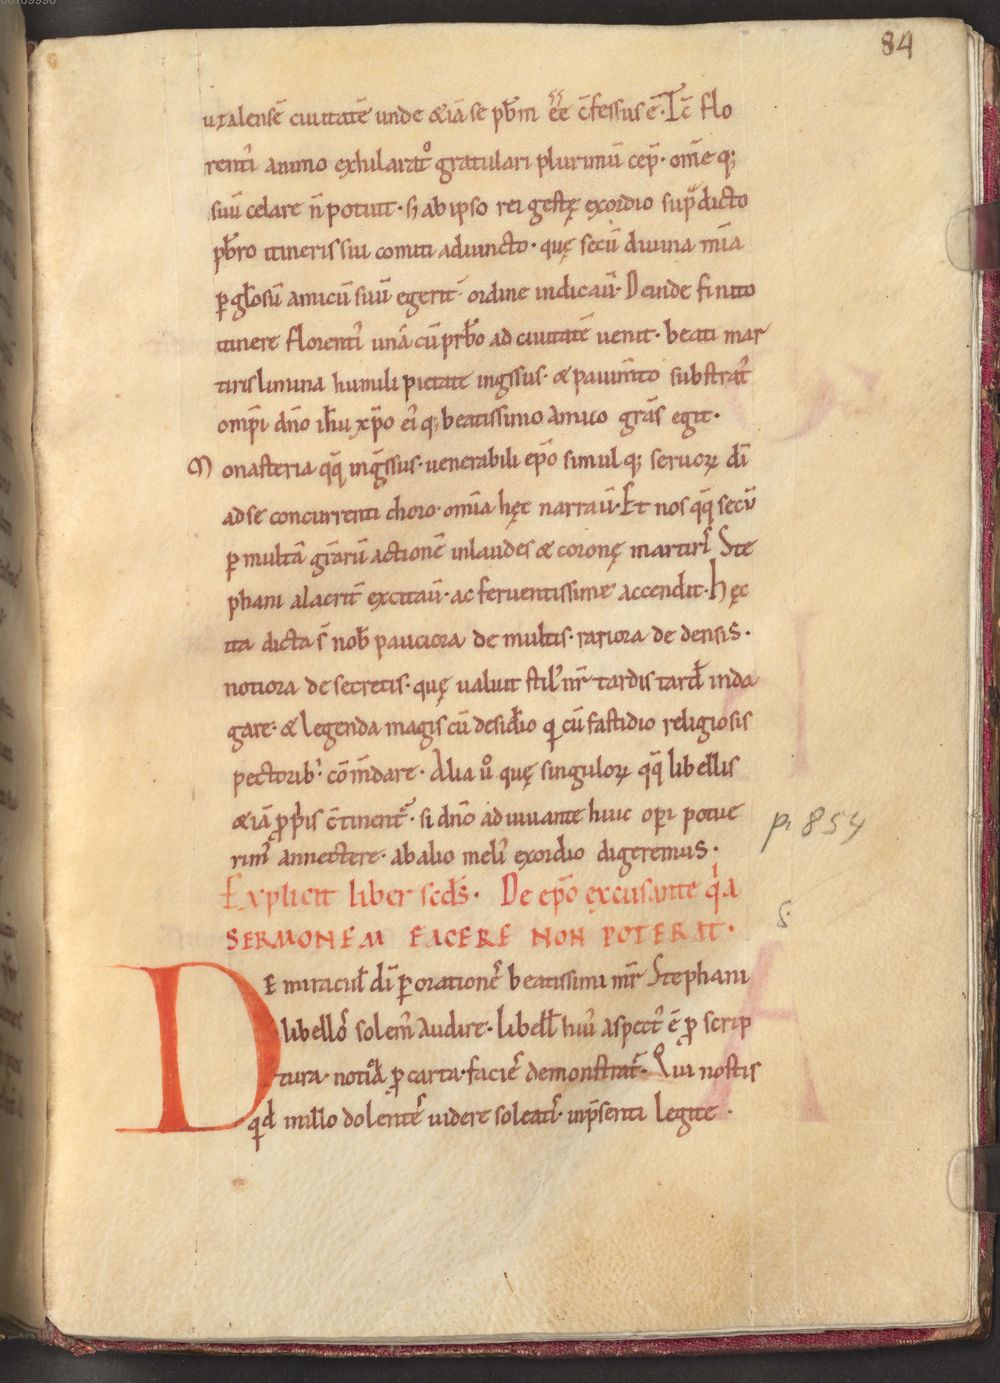 84
uzalensē ciuitatē unde & iā se pb̄m ēē c̄fessus ē· Tc̄ flo
renti᷒ animo exhilarato gratulari plurimū cep̄· om̄e q;
suū celare n̄ potuit· s; ab ipso rei gestę exordio sup̄dicto
pb̄ro itineris sui comiti adiuncto· quę secū diuina mīa
ꝑ gl̄osū amicū suū egerit̄ ordine indicau᷑· Deinde finito
itinere florenti᷒ unā cū pr̄b̄o ad ciuitatē uenit· beati mar
tiris limina humili pietate ingr̄ssus· & pauim̄to substrat᷒
omp̄i dn̄o ih̄u xp̄o ei᷒q; beatissimo amico grās egit·
Monasteria qq̨ ingr̄ssus· uenerabili ep̄o simul q; seruoꝝ dī
ad se concurrenti choro· om̄ia hęc narrau᷑· Et nos qq̨ secū
ꝑ multā gr̄arū actionē in laudes & coronę martir̄ Ste
phani alacrit̄ excitau᷑· ac feruentissime accendit· hęc
ita dicta s̄ nob̄ pauciora de multis· rariora de densis·
notiora de secretis· quę ualuit stil᷒ nr̄ tardis tard᷒ inda
gare· & legenda magis cū desid̄io q̄ cū fastidio religiosis
pectorib᷒ com̄dare· Alia ů quę singuloꝝ qq̨ libellis
& iā ꝓp̄is c̄tinent᷑· si dn̄o adiuuante huic op̄i potue
rim᷒ annectere· ab alio meli᷒ exordio digeremus·
p. 854
Explicit liber scd̄s· De ep̄o excusante qͥa
S.
SERMONEM FACERE NON POTERAT·
DE miracul̄ dī ꝑ orationē᷒ beatissimi mr̄ Stephani
libello᷒ solem᷒ audire· libell̄ hui᷒ aspect᷒ ē ꝓ scrip
tura· notiā ꝓ carta· facie᷒ demonstrat᷑· Qui nostis
qd̄ in illo dolente᷒ uidere soleati᷒· in p̄senti legite·